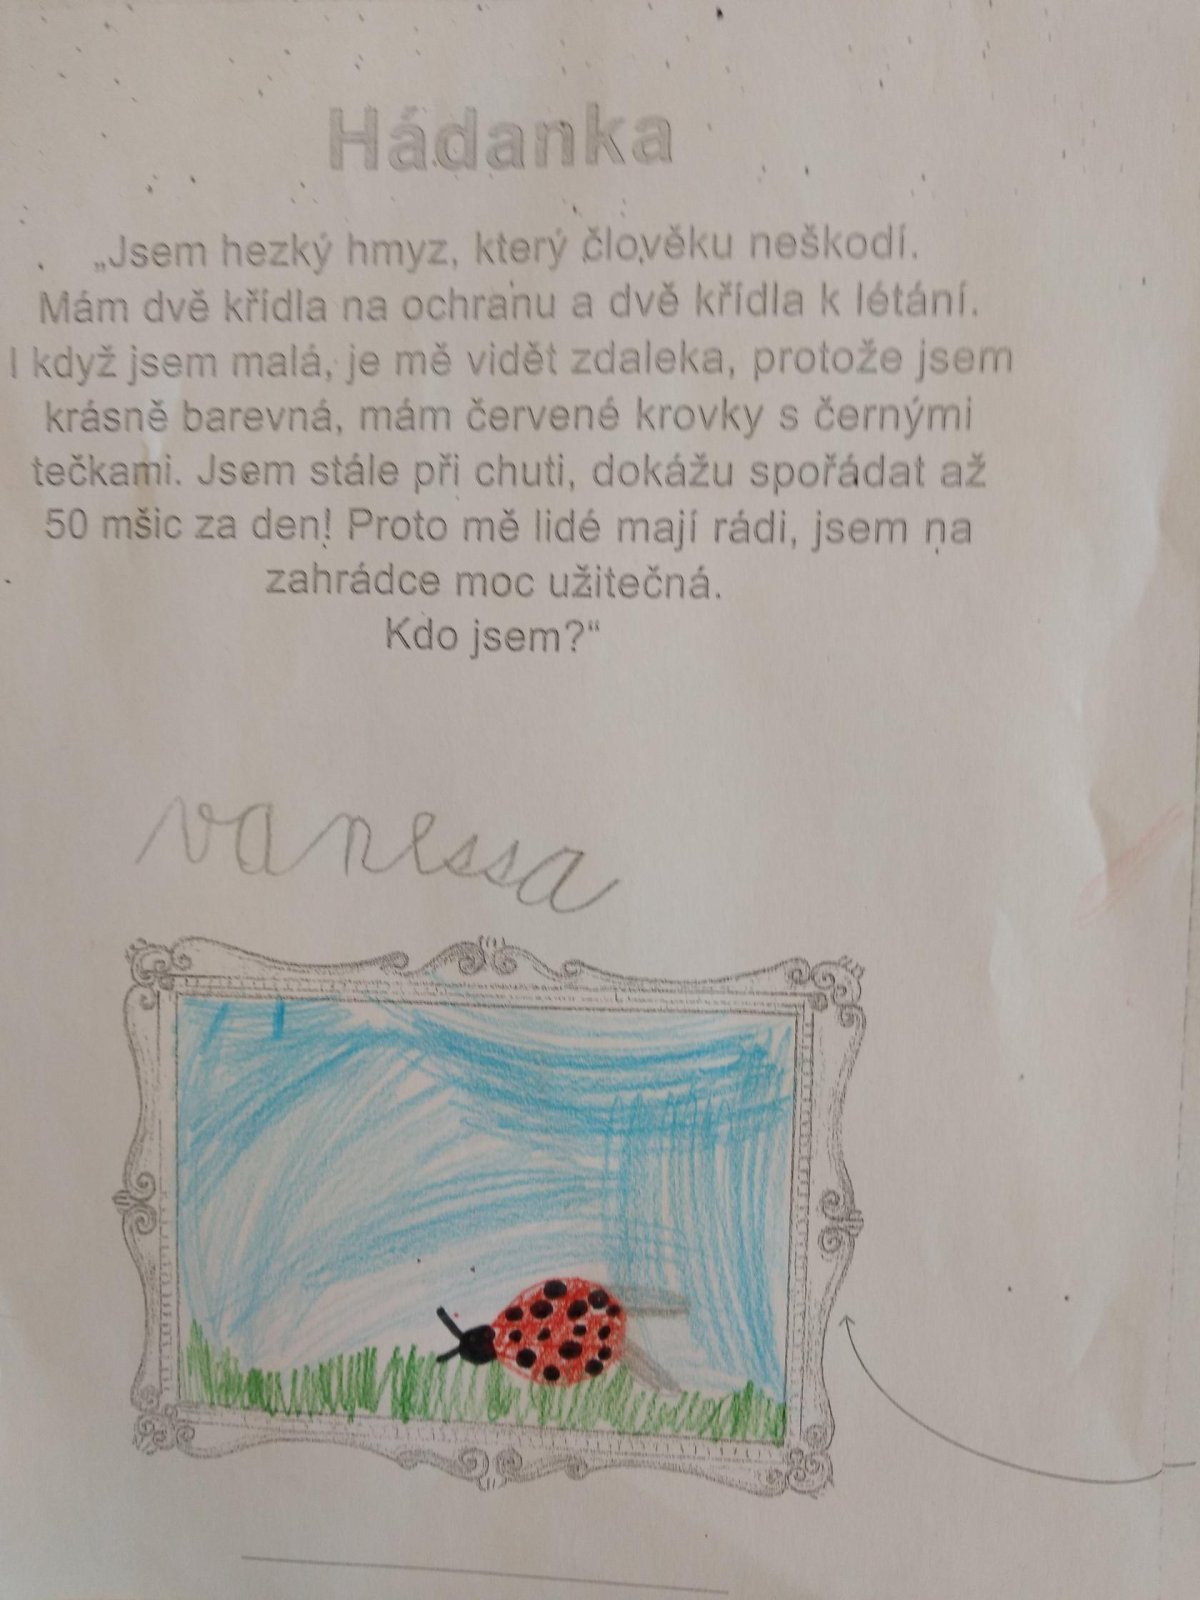 Hádanka
„Jsem hezký hmyz, který člověku neškodí.
Mám dvě křídla na ochranu a dvě křídla k létání.
I když jsem malá, je mě vidět zdaleka, protože jsem
krásně barevná, mám červené krovky s černými
tečkami. Jsem stále při chuti, dokážu spořádat až
50 mšic za den! Proto mě lidé mají rádi, jsem na
zahrádce moc užitečná.
Kdo jsem?“
vanessa